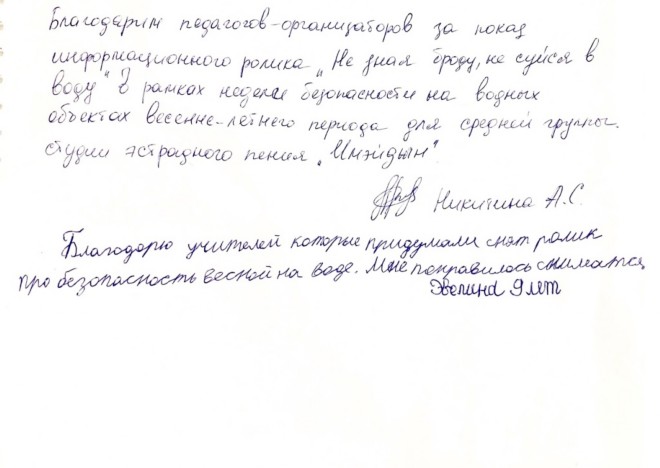 Благодарим педагогов-организаторов за показ
информационного ролика „Не зная броду, не суйся в
воду" в рамках недели безопасности на водных
объектах весенне-летнего периода для средней группы.
студии эстрадного пения „Имэйдын"
Никитина А.С.
Благодарю учителей которые придумали снят ролик
про безопасность весной на воде. Мне понравилось сниматся
Эвелина 9 лет